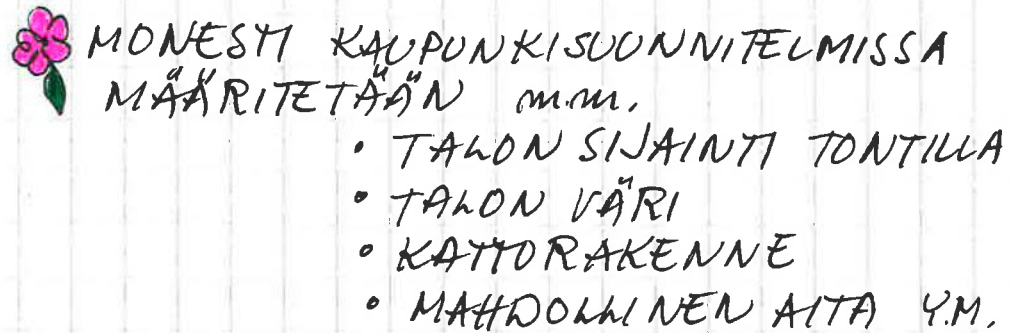 MONESTI KAUPUNKISUUNNITELMISSA
MÄÄRITETÄÄN m.m.
• TALON SIJAINTI TONTILLA
• TALON VÄRI
• KATTORAKENNE
• MAHDOLLINEN AITA Y.M.